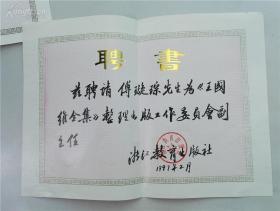 聘書
兹聘请 傅璇琮先生为《王國
維全集》整理出版工作委員會副
主任
浙江教育出版社
1997年2月